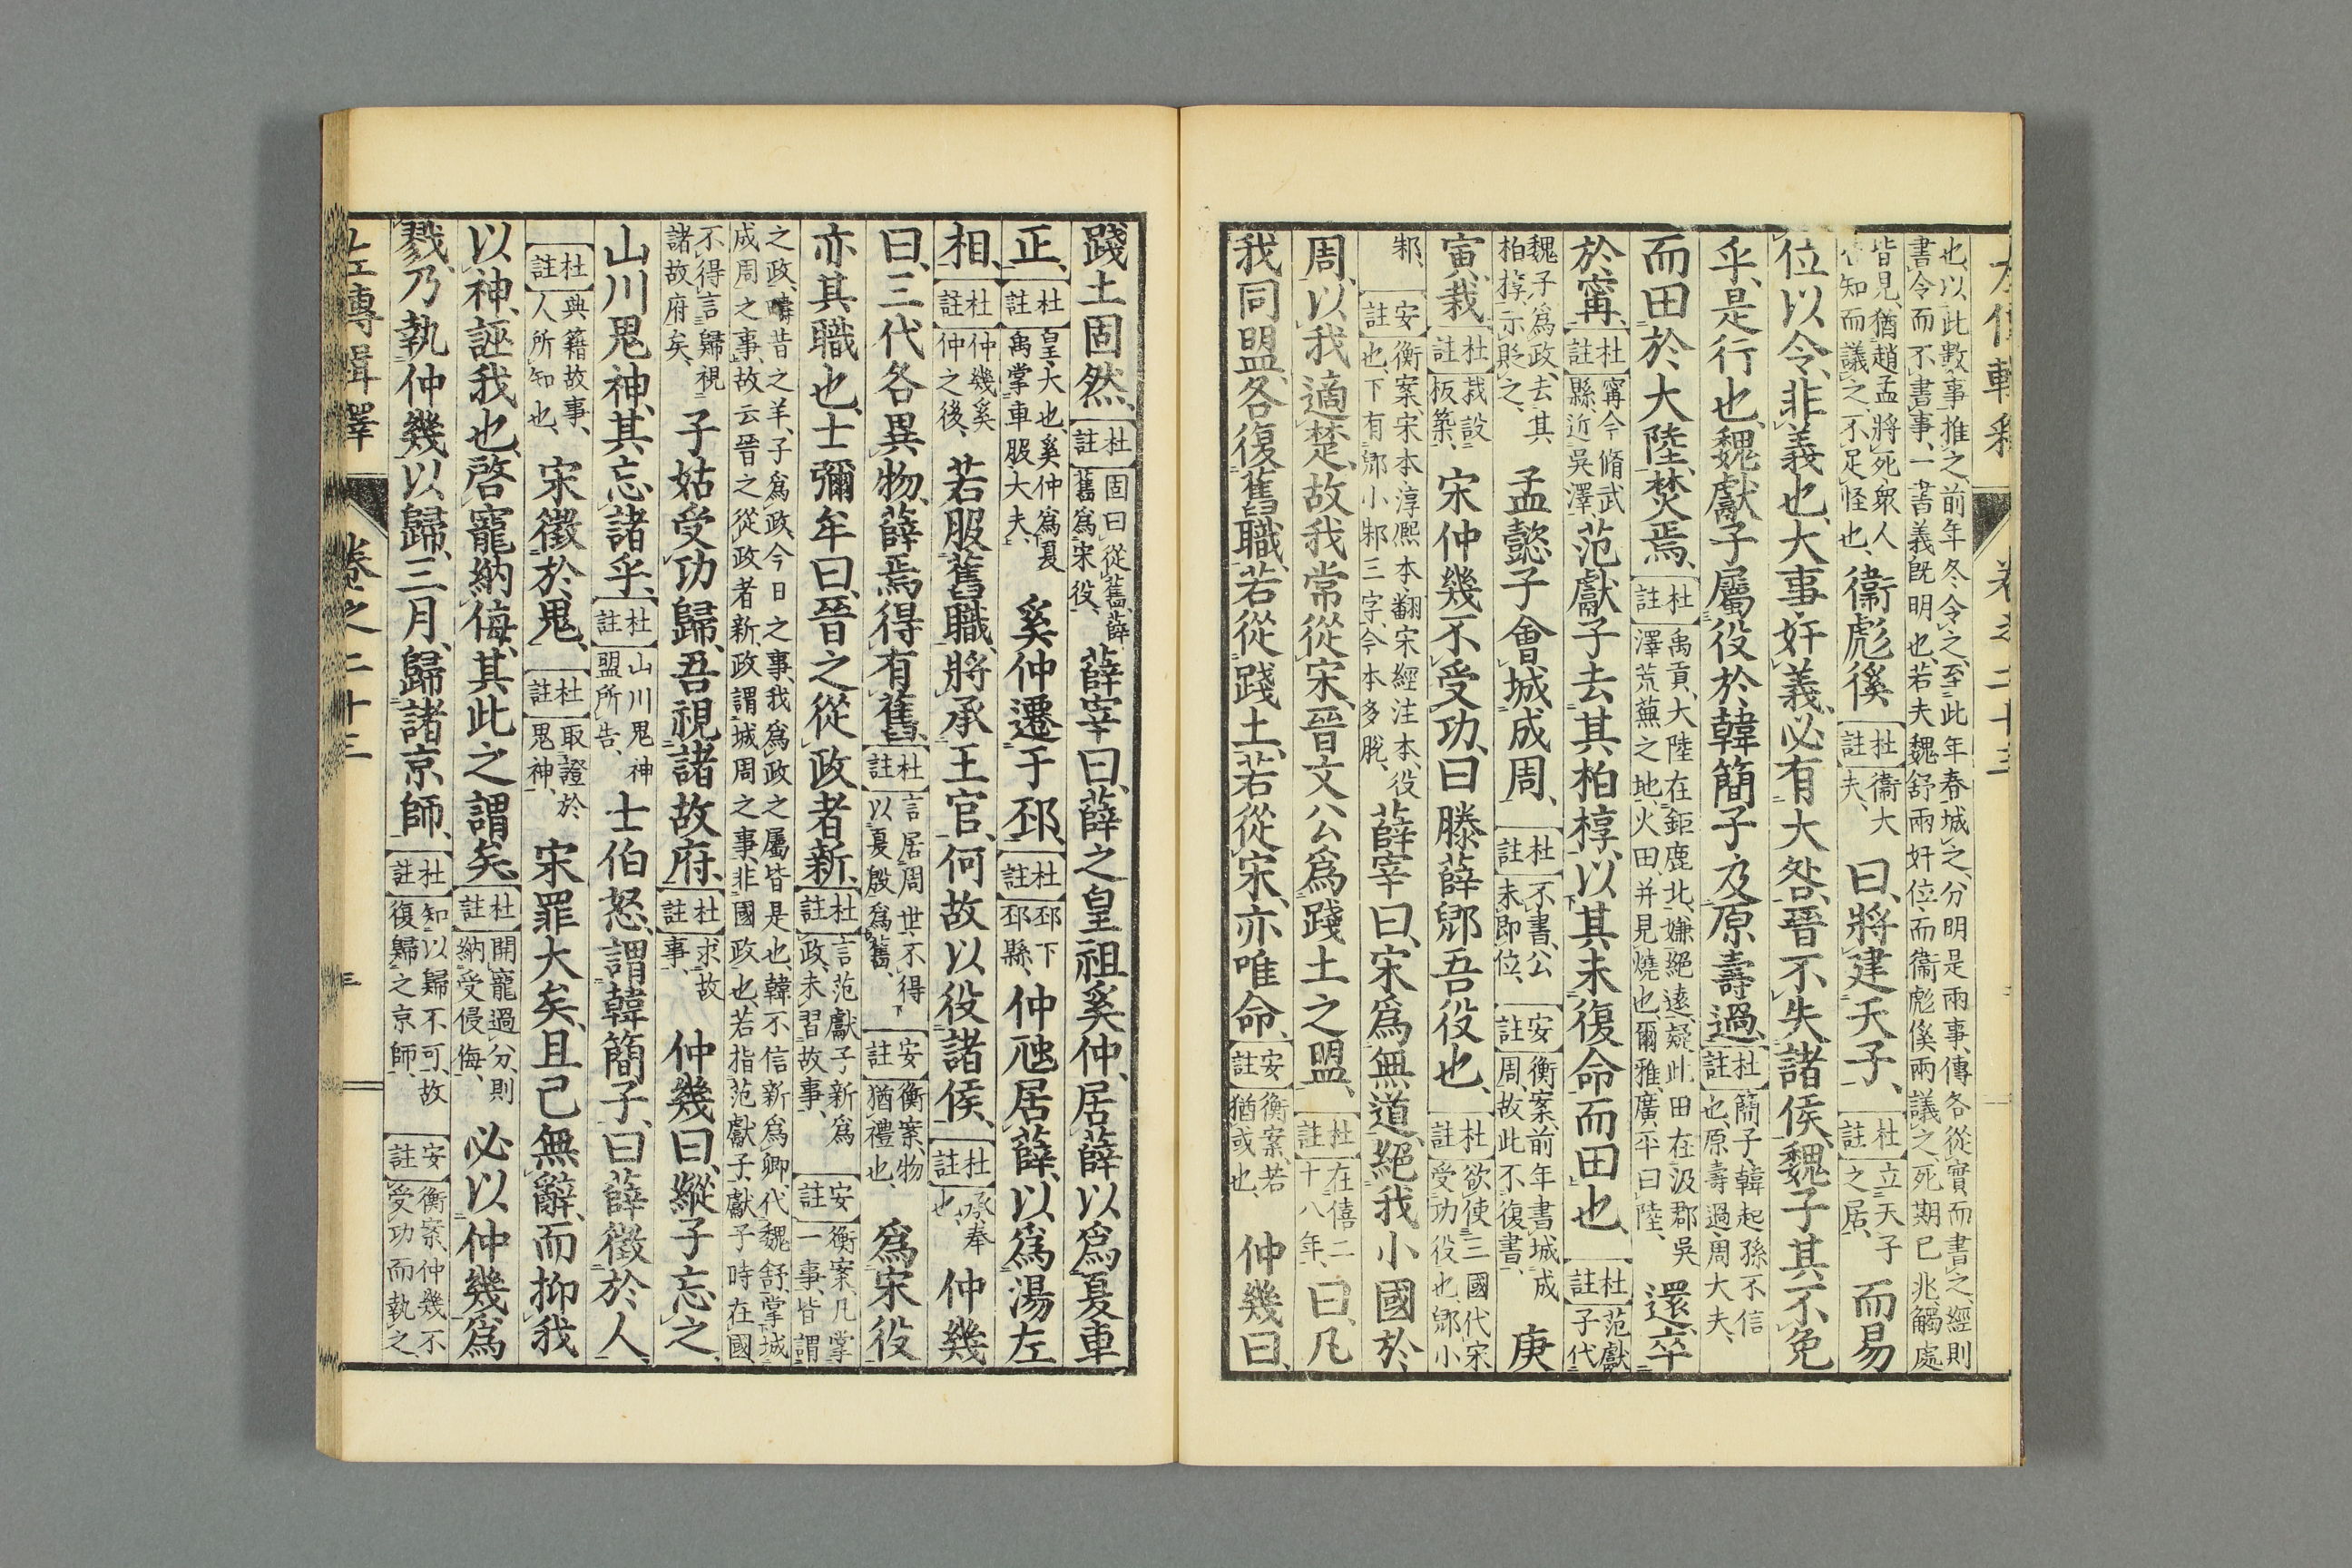 也以此數事推之前年冬令之至此年春城之分明是兩事傳各從實而書之經則
書令而不書事一書義既明也若夫魏舒兩奸位而衞彪傒兩議之死期已兆觸處
皆見猶趙孟將死衆人
知而議之不足怪也
衞彪傒
杜註
衞大
夫
曰將建天子
杜註
立天子
之居
而易
位以令非義也大事奸義必有大咎晉不失諸侯魏子其不免
乎是行也魏獻子屬役於韓簡子及原壽過
杜註
簡子韓起孫不信
也原壽過周大夫
而田於大陸焚焉
杜註
禹貢大陸在鉅鹿北嫌絕遠疑此田在汲郡吳
澤荒蕪之地火田并見燒也爾雅廣平曰陸
還卒
於甯
杜註
甯今脩武
縣近吳澤
范獻子去其柏椁以其未復命而田也
杜註
范獻
子代
魏子爲政去其
柏椁示貶之
孟懿子會城成周
杜註
不書公
未卽位
安註
衡案前年書城成
周故此不復書
庚
寅栽
杜註
栽設
板築
宋仲幾不受功曰滕薛郳吾役也
杜註
欲使三國代宋
受功役也郳小
邾
安註
衡案宋本淳熙本翻宋經注本役
也下有郳小邾三字今本多脫
薛宰曰宋爲無道絕我小國於
周以我適楚故我常從宋晉文公爲踐土之盟
杜註
在僖二
十八年
曰凡
我同盟各復舊職若從踐土若從宋亦唯命
安註
衡案若
猶或也
仲幾曰
踐土固然
杜註
固曰從舊薛
舊爲宋役
薛宰曰薛之皇祖奚仲居薛以爲夏車
正
杜註
皇大也奚仲爲夏
禹掌車服大夫
奚仲遷于邳
杜註
邳下
邳縣
仲虺居薛以爲湯左
相
杜註
仲虺奚
仲之後
若服舊職將承王官何故以役諸侯
杜註
承奉
也
仲幾
曰三代各異物薛焉得有舊
杜註
言居周世不得
以夏殷爲舊
安註
衡案物
猶禮也
爲宋役
亦其職也士彌牟曰晉之從政者新
杜註
言范獻子新爲
政未習故事
安註
衡案凡掌
一事皆謂
之政疇昔之羊子爲政今日之事我爲政之屬皆是也韓不信新爲卿代魏舒掌城
成周之事故云晉之從政者新政謂城周之事非國政也若指范獻子獻子時在國
不得言歸視
諸故府矣
子姑受功歸吾視諸故府
杜註
求故
事
仲幾曰縱子忘之
山川鬼神其忘諸乎
杜註
山川鬼神
盟所告
士伯怒謂韓簡子曰薛徵於人
杜註
典籍故事
人所知也
宋徵於鬼
杜註
取證於
鬼神
宋罪大矣且己無辭而抑我
以神誣我也啓寵納侮其此之謂矣
杜註
開寵過分則
納受侵侮
必以仲幾爲
戮乃執仲幾以歸三月歸諸京師
杜註
知以歸不可故
復歸之京師
安註
衡案仲幾不
受功而執之
左傳輯釋 卷之二十三